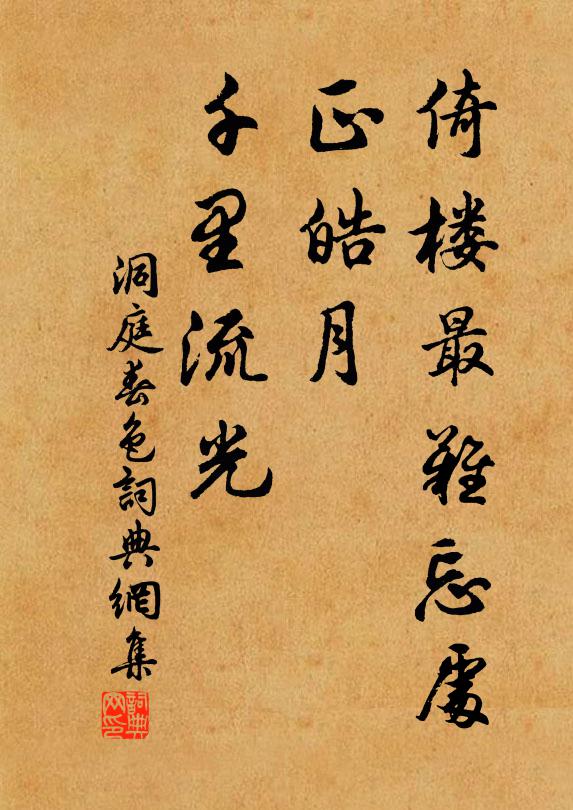 倚楼最難忘處
正皓月
千里流光
洞庭春色詞典網集
詞典网印